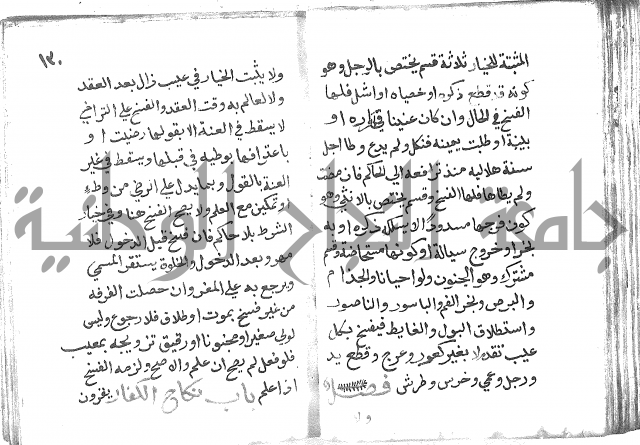 المثبتة للخيار ثلاثة قسم يختص بالرجل وهو
كونه قد قطع ذكره او خصياه او اشل فلها
الفسخ في الحال وان كان عنينا باقراره او
بينة او طلبت يمينه فنكل ولم يدع وطا اجل
سنة هلالية منذ ترافعه الي الحاكم فان مضت
ولم يطاها فلها الفسخ وقسم يختص بالانثي وهو
كون فرجها مسدودا لا يسلكه ذكر او به
بخر او قروح سيالة او كونها مستحاضة وقسم
مشترك وهو الجنون ولو احيانا والجذام
والبرص وبخر الفم والباسور والناصور
واستطلاق البول والغايط فيفسخ بكل
عيب تقدم لا بغيره كعور وعرج وقطع يد
ورجل وعمي وخرس وطرش فصل
ولا
١٣٠
ولا يثبت الخيار في عيب زال بعد العقد
ولا لعالم به وقت العقد والفسخ علي التراخي
لا يسقط في العنة الا بقولها رضيت او
باعترافها بوطيه في قبلها ويسقط في غير
العنة بالقول وبما يدل علي الرضي من وطء
او تمكين مع العلم ولا يصح الفسخ هنا وفي خيار
الشرط بلا حاكم فان فسخ قبل الدخول فلا
مهر وبعد الدخول والخلوة يستقر المسمي
ويرجع به علي المغر وان حصلت الفرقه
من غير فسخ بموت او طلاق فلا رجوع وليس
لولي صغير او مجنون او رقيق تزويجه بمعيب
فلو فعل لم يصح ان علم والا صح ولزمه الفسخ
اذا علم باب نكاح الكفار يقرون
جامعة النجاح الوطنية